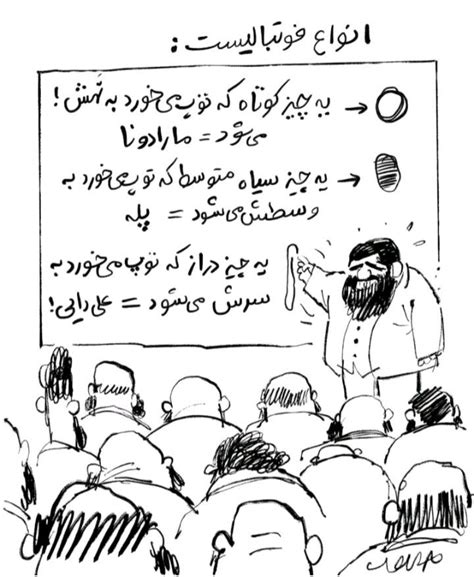 انواع فوتبالیست:
یه چیز کوتاه که توپ می‌خورد به تَهش!
می‌شود = مارادونا
یه چیز سیاه متوسط که توپ می‌خورد به
وسطش می‌شود = پله
یه چیز دراز که توپ می‌خورد به
سرش می‌شود = علی دایی!